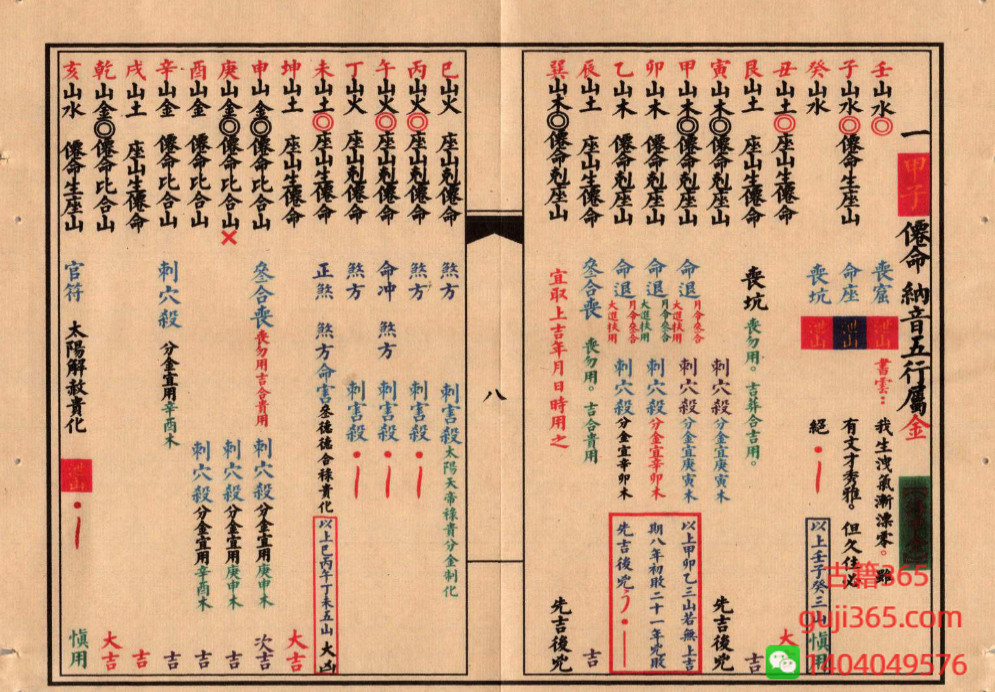 一甲子僊命納音五行屬金
壬山水◎ 喪窟 泄山 書雲：我生洩氣漸漂零。雖
子山水◎ 僊命生座山 命座 泄山 有文才秀雅。但久住必
癸山水 喪坑 泄山 絕 以上壬子癸三山 慎用
丑山土◎ 座山生僊命 大吉
艮山土 座山生僊命 喪坑 喪勿用。吉葬合吉用。 吉
寅山木◎ 僊命剋座山 刺穴殺 分金宜庚寅木 先吉後兇
甲山木◎ 僊命剋座山 命退 月令叁合大進扶用 刺穴殺 分金宜庚寅木
卯山木 僊命剋座山 命退 月令叁合大進扶用 刺穴殺 分金宜辛卯木
乙山木 僊命剋座山 命退 月令叁合大進扶用 刺穴殺 分金宜辛卯木
以上甲卯乙三山若無上吉
期八年初敗二十一年兇敗
先吉後兇
辰山土 座山生僊命 叁合喪 喪勿用。吉合貴用 吉
巽山木◎ 僊命剋座山 宜取上吉年月日時用之 先吉後兇
八
巳山火 座山剋僊命 煞方 刺害殺 太陽天帝祿貴分金制化
丙山火◎ 座山剋僊命 煞方 刺害殺
午山火◎ 座山剋僊命 命冲 煞方 刺害殺
丁山火 座山剋僊命 煞方 刺害殺
未山土◎ 座山生僊命 正煞 煞方命害 叁德德合祿貴化 以上巳丙午丁未五山大凶
坤山土 座山生僊命 大吉
申山金◎ 僊命比合山 叁合喪 喪勿用吉合貴用 刺穴殺 分金宜用庚申木 次吉
庚山金◎ 僊命比合山 刺穴殺 分金宜用庚申木 吉
酉山金 僊命比合山 刺穴殺 分金宜用辛酉木 吉
辛山金 僊命比合山 刺穴殺 分金宜用辛酉木 吉
戌山土 座山生僊命 吉
乾山金◎ 僊命比合山 大吉
亥山水 僊命生座山 官符 太陽解赦貴化 泄山 慎用
古籍365
guji365.com
1404049576